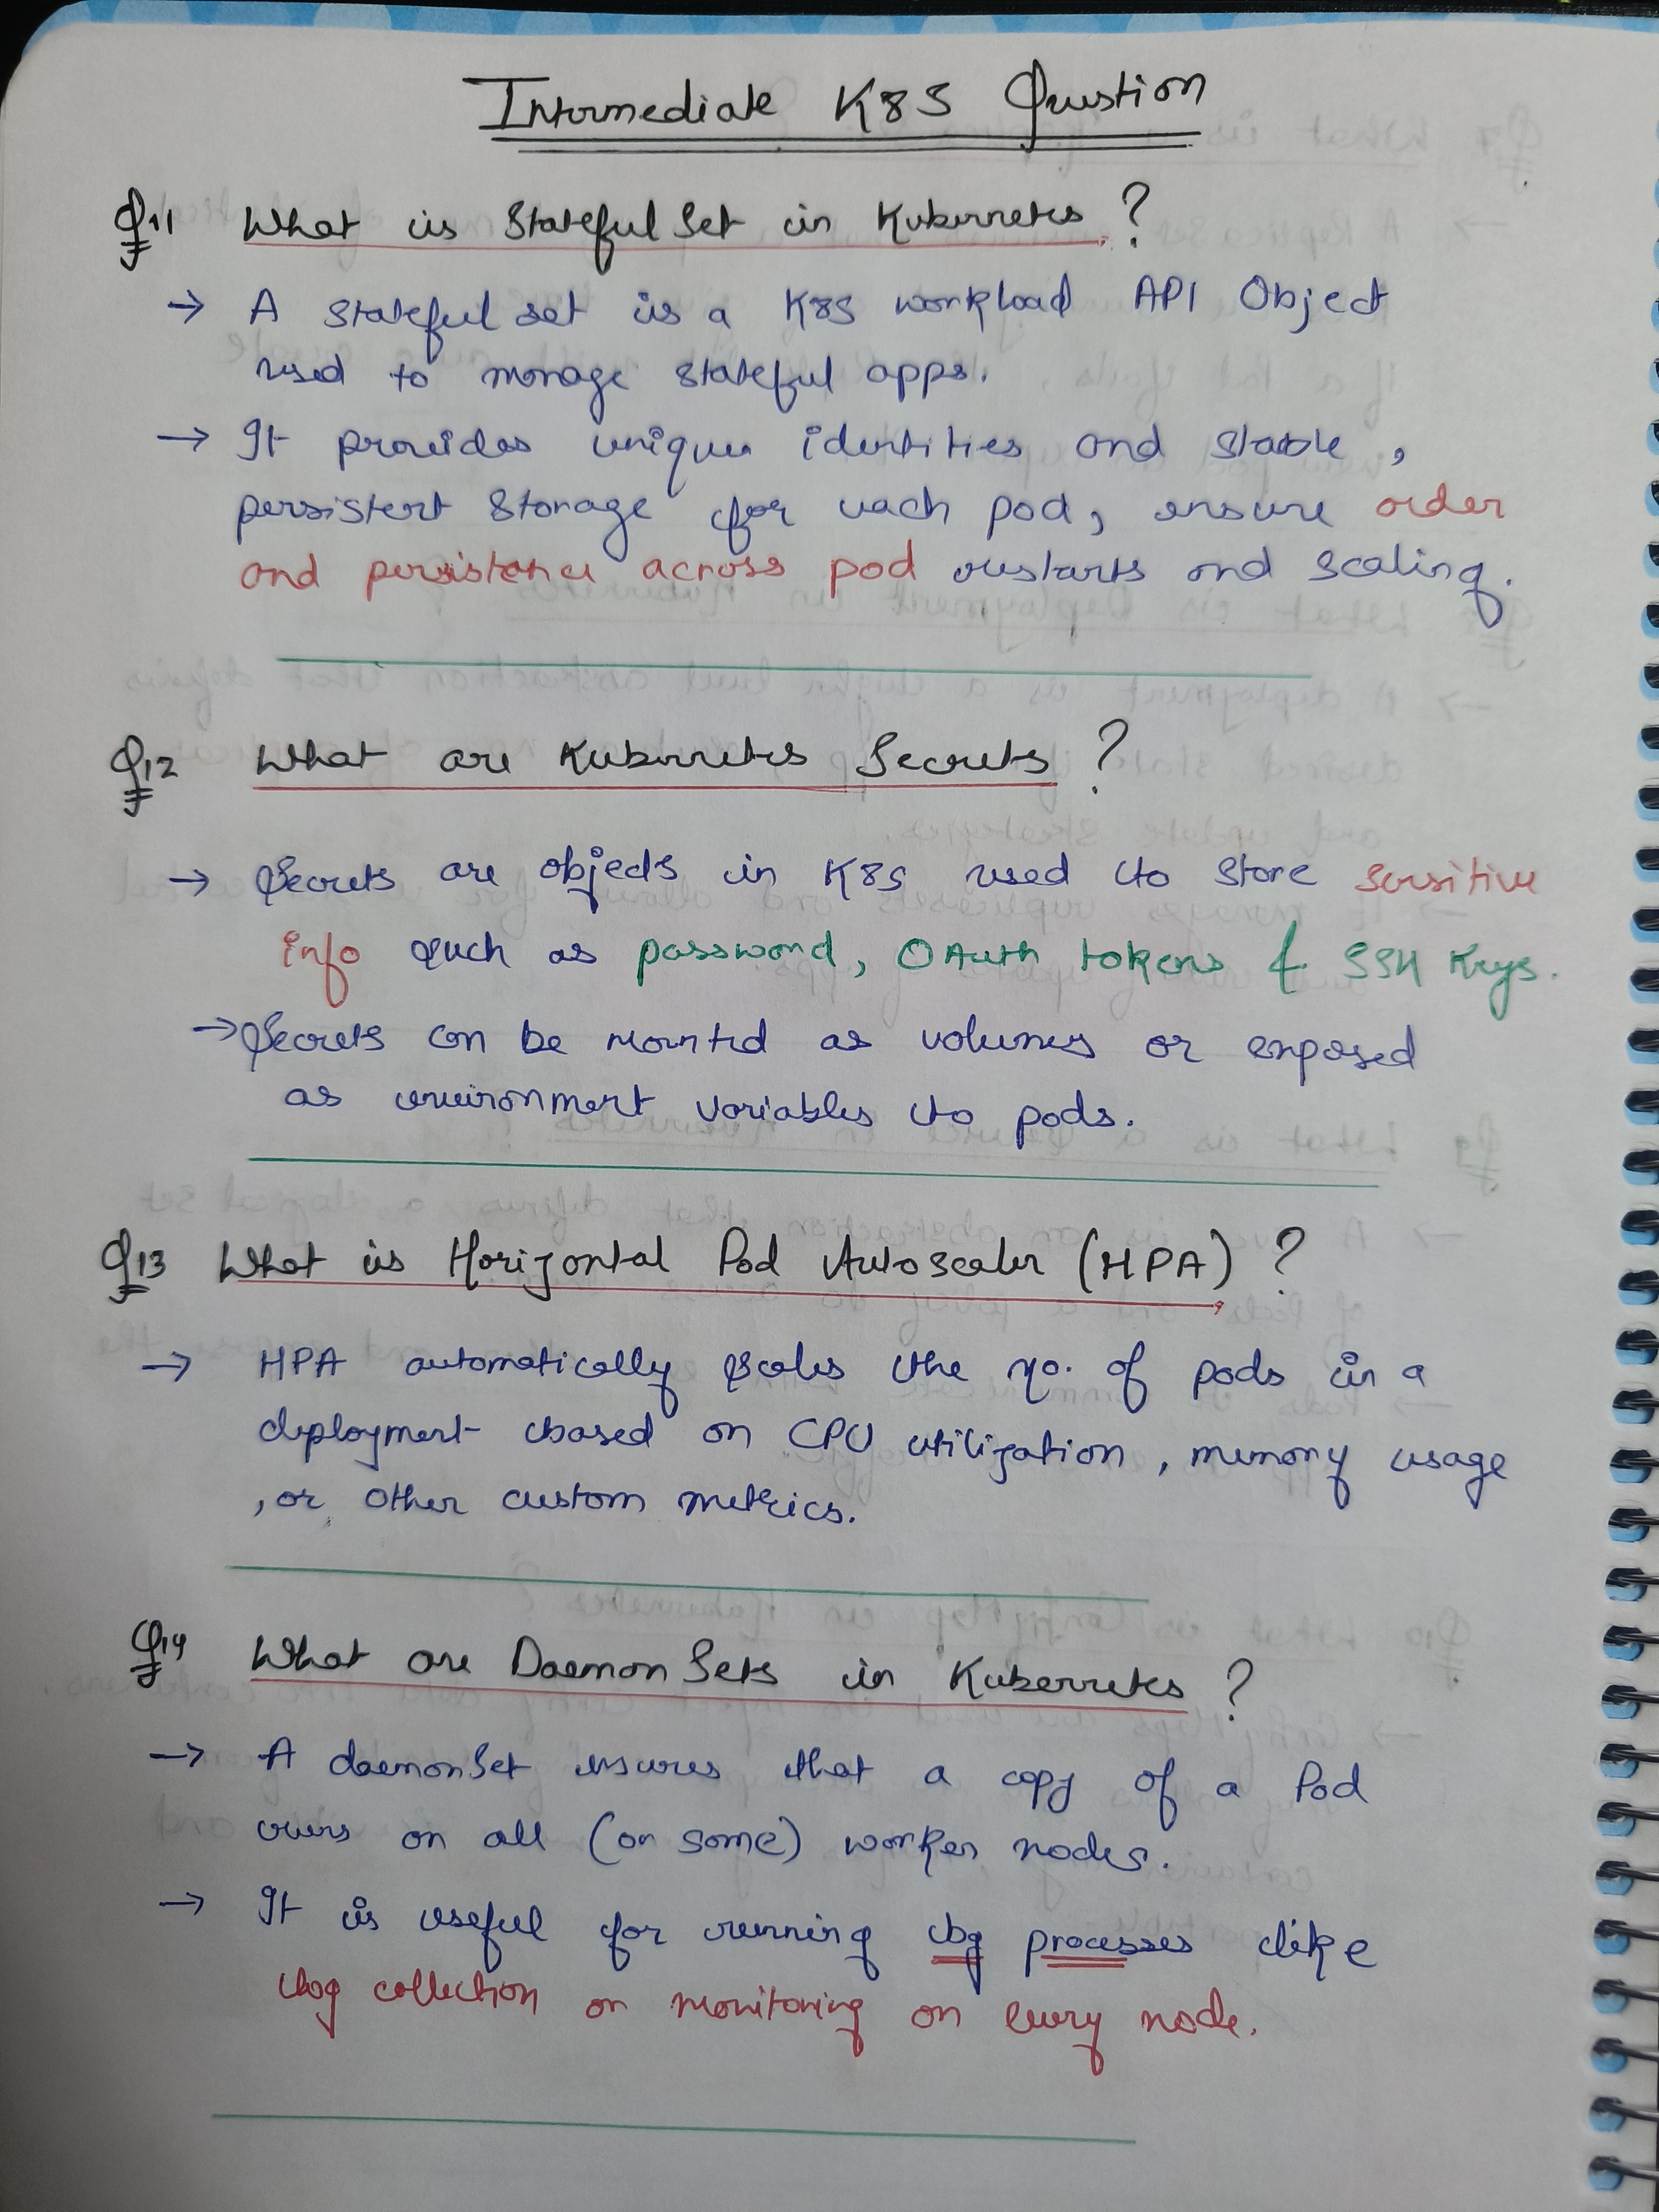 Intermediate K8S Question
Q11 What is StatefulSet in Kubernetes ?
→ A statefulset is a K8S workload API Object
used to manage stateful apps.
→ It provides unique identities and stable ,
persistent storage for each pod, ensure order
and persistence across pod restarts and scaling.
Q12 What are Kubernetes Secrets ?
→ Secrets are objects in K8S used to store sensitive
info such as password, OAuth tokens & SSH Keys.
→ Secrets can be mounted as volumes or exposed
as environment variables to pods.
Q13 What is Horizontal Pod Autoscaler (HPA) ?
→ HPA automatically scales the no. of pods in a
deployment based on CPU utilization , memory usage
, or other custom metrics.
Q14 What are DaemonSets in Kubernetes ?
→ A daemonSet ensures that a copy of a Pod
runs on all (or some) worker nodes.
→ It is useful for running bg processes like
log collection or monitoring on every node.